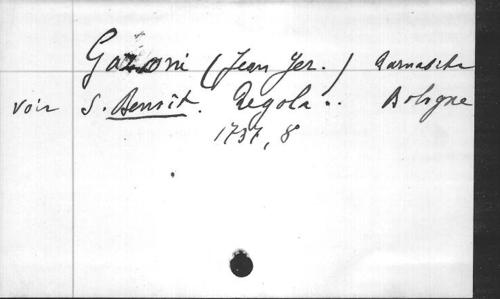 Gazoni (Jean Jer.) Barnabita
voir S. Benoît. Regola.. Bologne
1737, 8